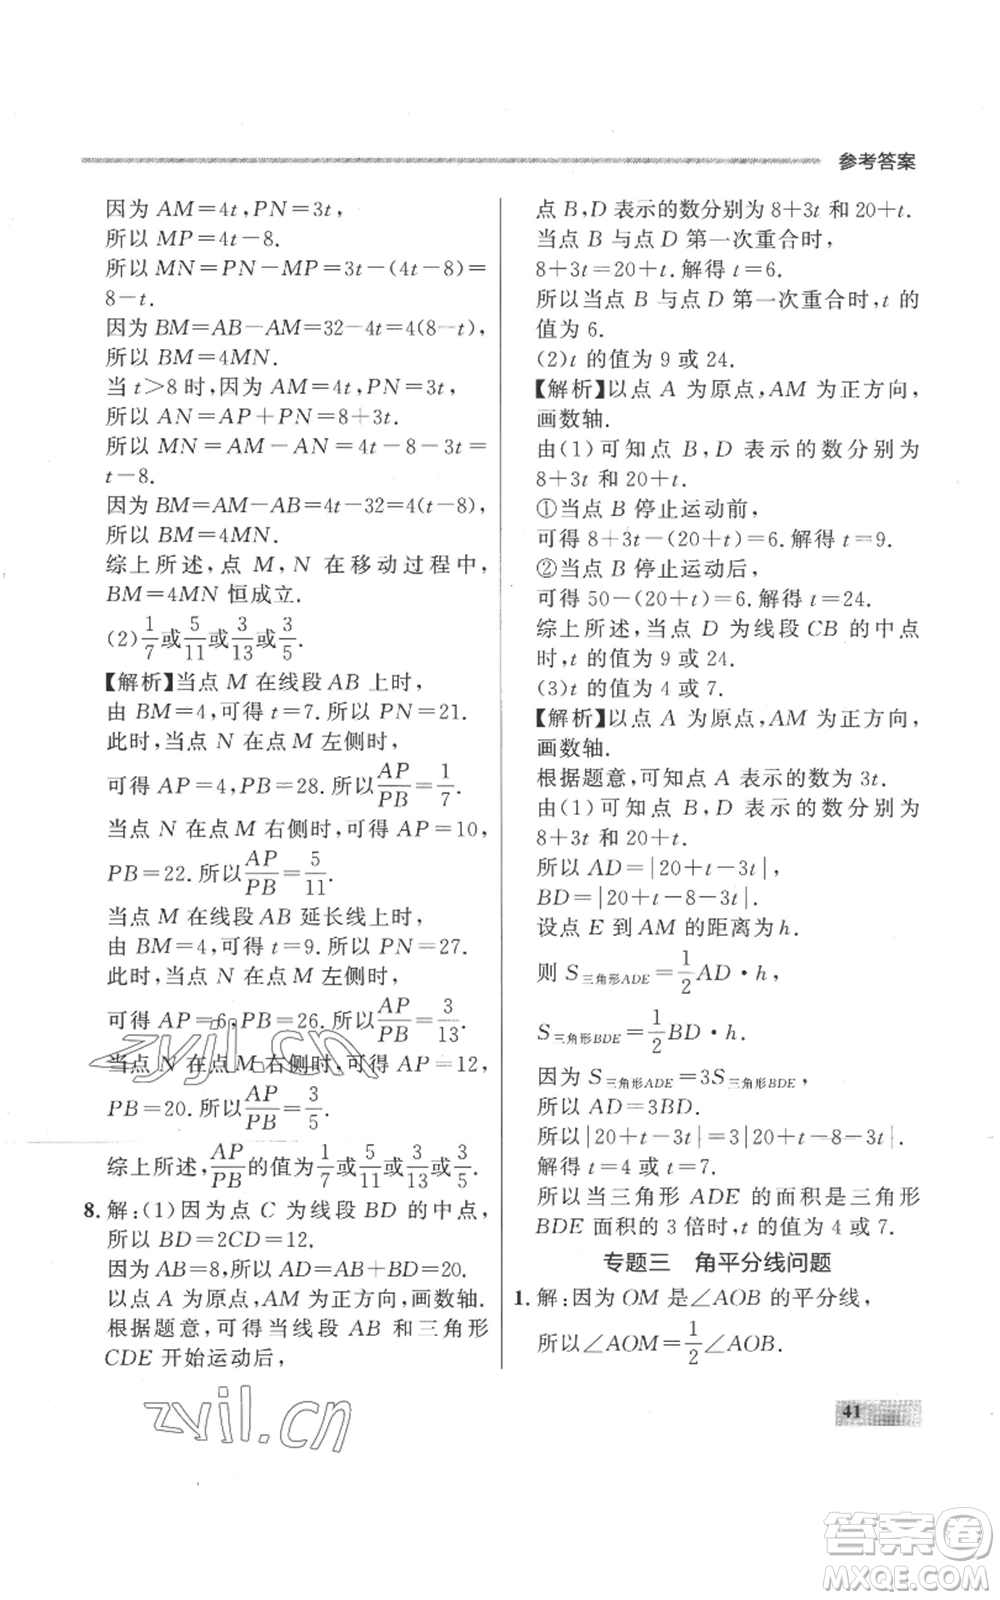 参考答案
因为 AM=4t,PN=3t,
所以 MP=4t-8.
所以 MN=PN-MP=3t-(4t-8)=
8-t.
因为 BM=AB-AM=32-4t=4(8-t),
所以 BM=4MN.
当 t>8 时,因为 AM=4t,PN=3t,
所以 AN=AP+PN=8+3t.
所以 MN=AM-AN=4t-8-3t=
t-8.
因为 BM=AM-AB=4t-32=4(t-8),
所以 BM=4MN.
综上所述,点 M,N 在移动过程中,
BM=4MN 恒成立.
(2)1/7或5/11或3/13或3/5.
【解析】当点 M 在线段 AB 上时,
由 BM=4,可得 t=7.所以 PN=21.
此时,当点 N 在点 M 左侧时,
可得 AP=4,PB=28.所以AP/PB=1/7.
当点 N 在点 M 右侧时,可得 AP=10,
PB=22.所以AP/PB=5/11.
当点 M 在线段 AB 延长线上时,
由 BM=4,可得 t=9.所以 PN=27.
此时,当点 N 在点 M 左侧时,
可得 AP=6,PB=26.所以AP/PB=3/13.
当点 N 在点 M 右侧时,可得 AP=12,
PB=20.所以AP/PB=3/5.
综上所述,AP/PB的值为1/7或5/11或3/13或3/5.
8.解:(1)因为点 C 为线段 BD 的中点,
所以 BD=2CD=12.
因为 AB=8,所以 AB+BD=20.
以点 A 为原点,AM 为正方向,画数轴.
根据题意,可得当线段 AB 和三角形
CDE 开始运动后,
点 B,D 表示的数分别为 8+3t 和 20+t.
当点 B 与点 D 第一次重合时,
8+3t=20+t.解得 t=6.
所以当点 B 与点 D 第一次重合时,t 的
值为 6.
(2)t 的值为 9 或 24.
【解析】以点 A 为原点,AM 为正方向,
画数轴.
由(1)可知点 B,D 表示的数分别为
8+3t 和 20+t.
①当点 B 停止运动前,
可得 8+3t-(20+t)=6.解得 t=9.
②当点 B 停止运动后,
可得 50-(20+t)=6.解得 t=24.
综上所述,当点 D 为线段 CB 的中点
时,t 的值为 9 或 24.
(3)t 的值为 4 或 7.
【解析】以点 A 为原点,AM 为正方向,
画数轴.
根据题意,可知点 A 表示的数为 3t.
由(1)可知点 B,D 表示的数分别为
8+3t 和 20+t.
所以 AD=|20+t-3t|,
BD=|20+t-8-3t|.
设点 E 到 AM 的距离为 h.
则 S三角形ADE=1/2AD·h,
S三角形BDE=1/2BD·h.
因为 S三角形ADE=3S三角形BDE,
所以 AD=3BD.
所以|20+t-3t|=3|20+t-8-3t|.
解得 t=4 或 t=7.
所以当三角形 ADE 的面积是三角形
BDE 面积的 3 倍时,t 的值为 4 或 7.
专题三 角平分线问题
1.解:因为 OM 是∠AOB 的平分线,
所以∠AOM=1/2∠AOB.
41
zyjl.cn
zyjl.cn
答案卷
MXQE.COM